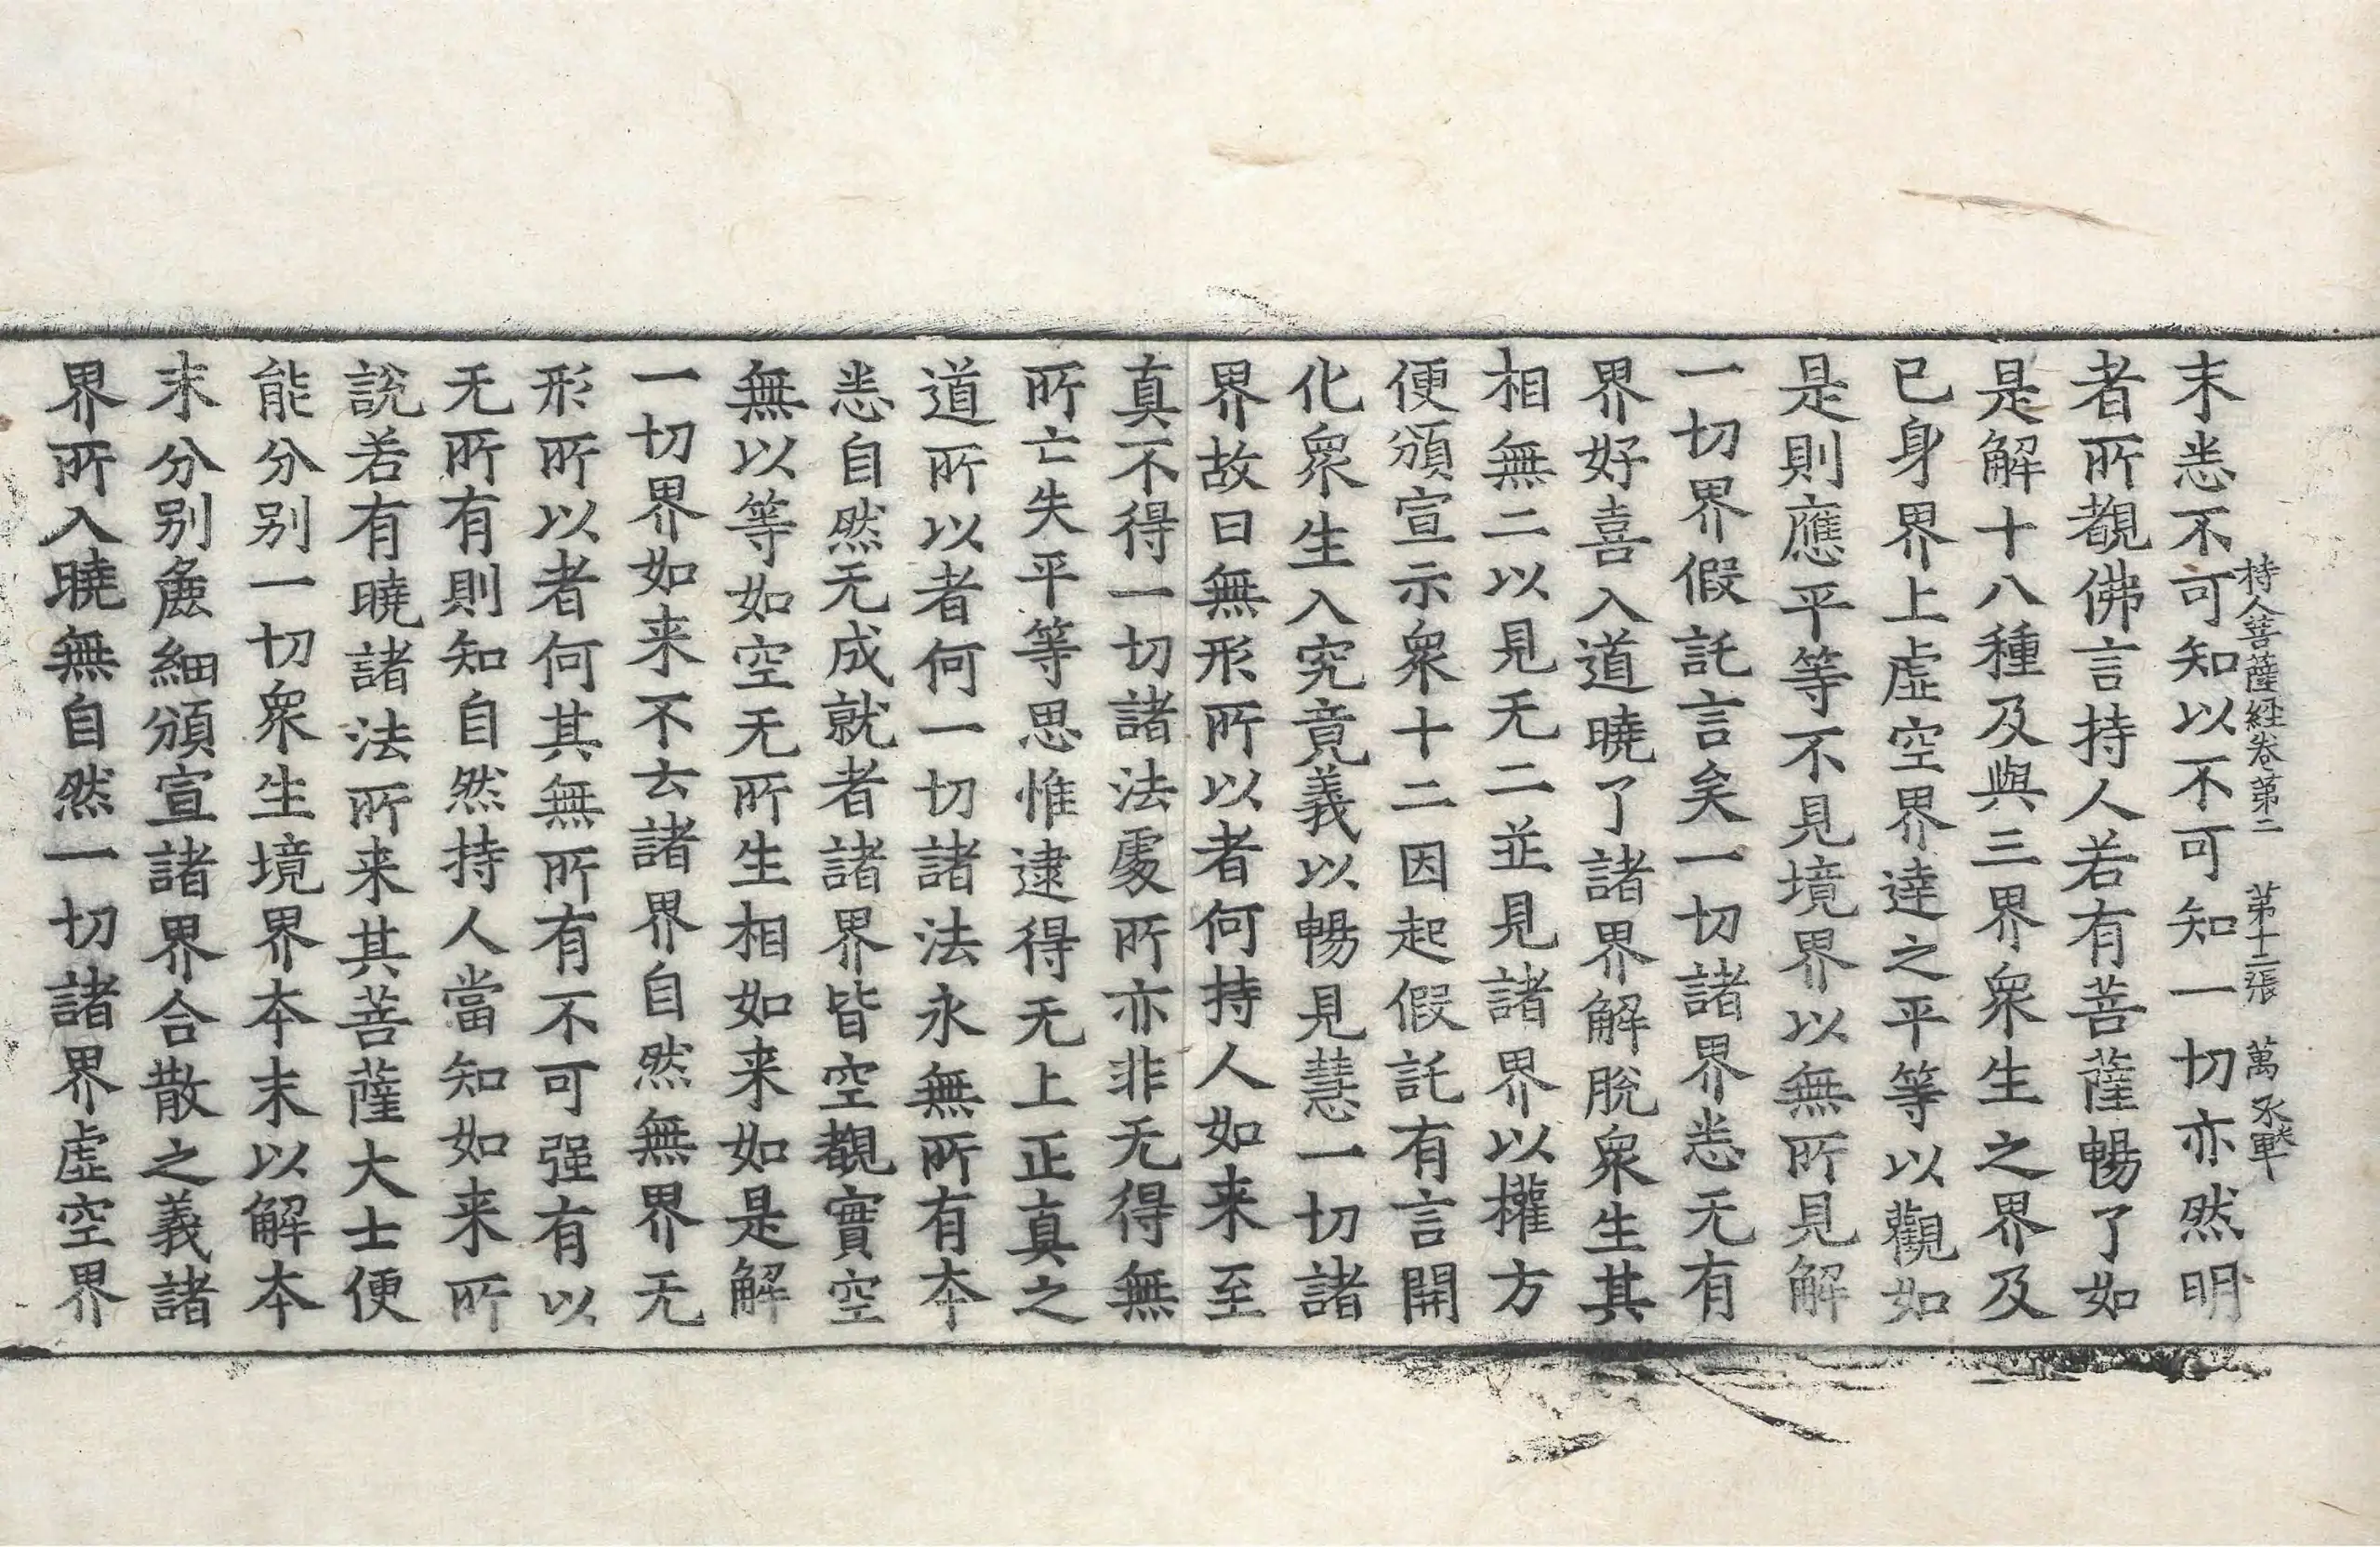 持人菩薩経卷第二 第十二張 萬
末悉不可知以不可知一切亦然明
者所覩佛言持人若有菩薩暢了如
是解十八種及與三界衆生之界及
已身界上虛空界達之平等以觀如
是則應平等不見境界以無所見解
一切界假託言矣一切諸界悉无有
界好喜入道曉了諸界解脫衆生其
相無二以見无二並見諸界以權方
便頒宣示衆十二因起假託有言開
化衆生入究竟義以暢見慧一切諸
界故曰無形所以者何持人如来至
真不得一切諸法處所亦非无得無
所亡失平等思惟逮得无上正真之
道所以者何一切諸法永無所有夲
悉自然无成就者諸界皆空覩實空
無以等如空无所生相如来如是解
一切界如来不去諸界自然無界无
形所以者何其無所有不可强有以
无所有則知自然持人當知如来所
說若有曉諸法所来其菩薩大士便
能分別一切衆生境界夲末以解夲
末分別麁細頒宣諸界合散之義諸
界所入曉無自然一切諸界虛空界